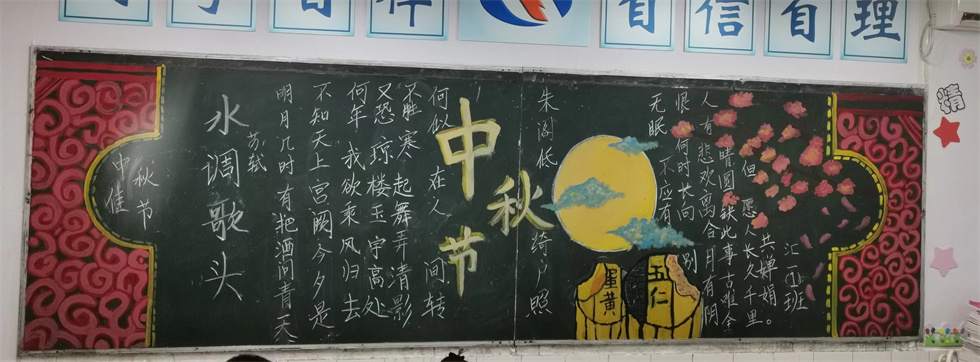 自信自理
中秋节
佳
中
水调歌头
苏轼
明月几时有把酒问青天
不知天上宫阙今夕是
何年我欲乘风归去
又恐琼楼玉宇高处
不胜寒起舞弄清影
何似在人间转
中秋节
朱阁低绮户照
无眠不应有
恨何时长向别
人有悲欢离合月有阴
晴圆缺此事古难全
但愿人长久千里
共婵娟。
汇①班
蛋黄
五仁